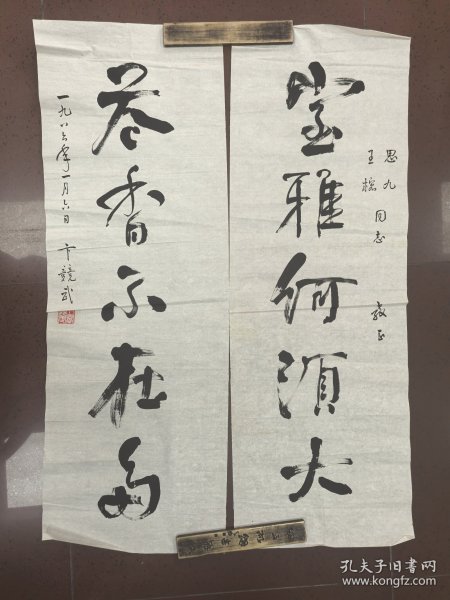 室雅何须大
思九
王榕
同志
教正
花香不在多
一九八六年一月六日 卞竞武
孔夫子旧书网
www.kongfz.com